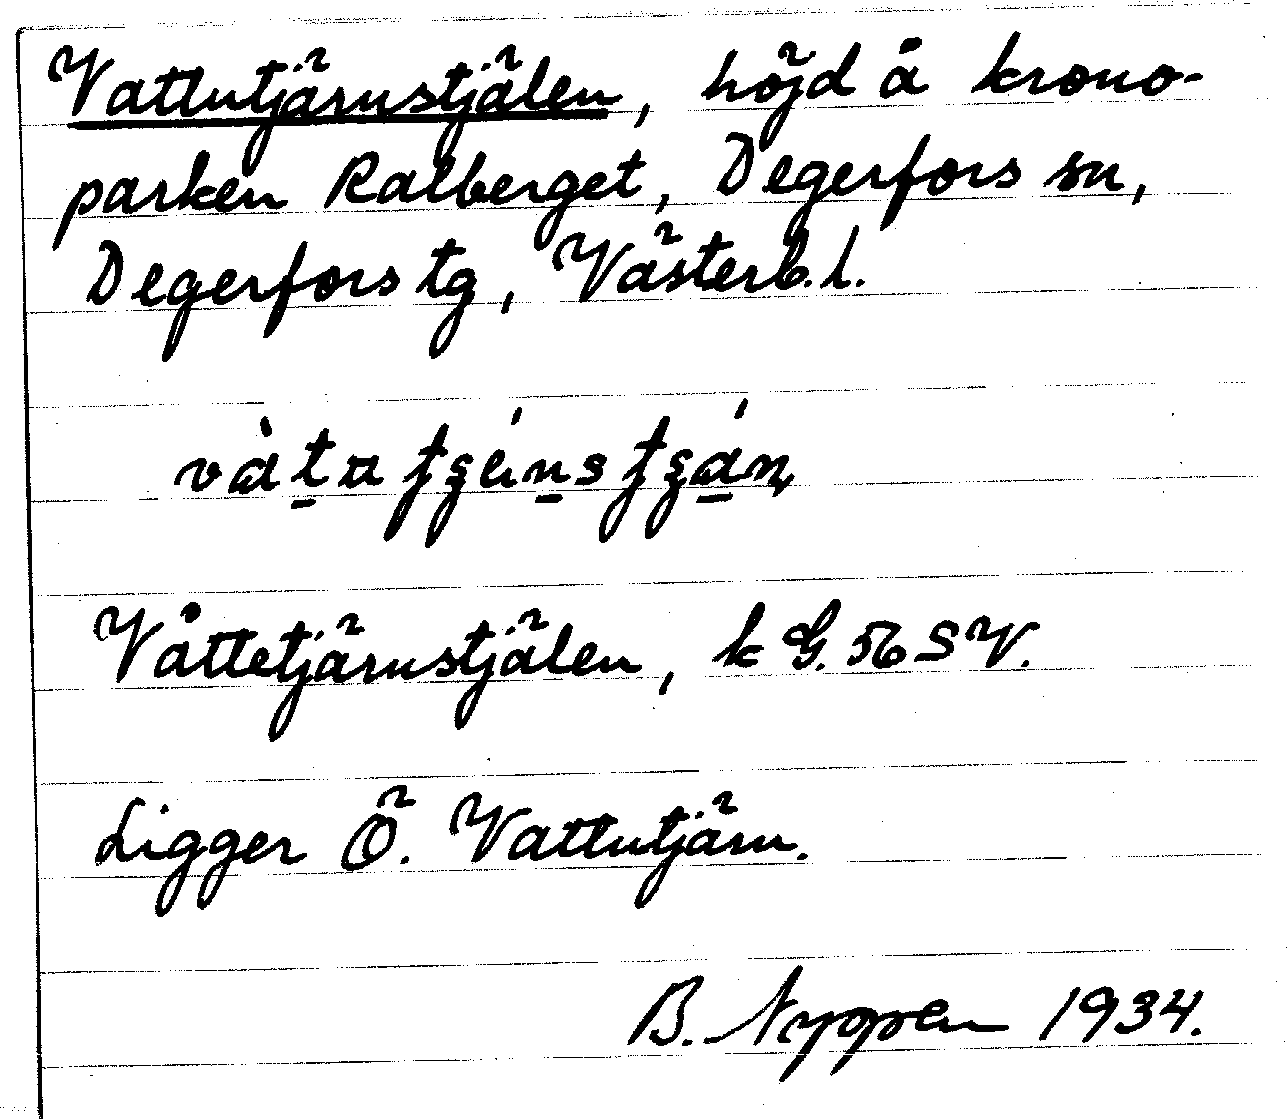 Vattutjärnstjälen, höjd å krono-
parken Ralberget, Degerfors sn,
Degerfors tg, Västerb. l.
Våttetjärnstjälen, k G. 56 SV.
Ligger Ö. Vattutjärn.
1934.